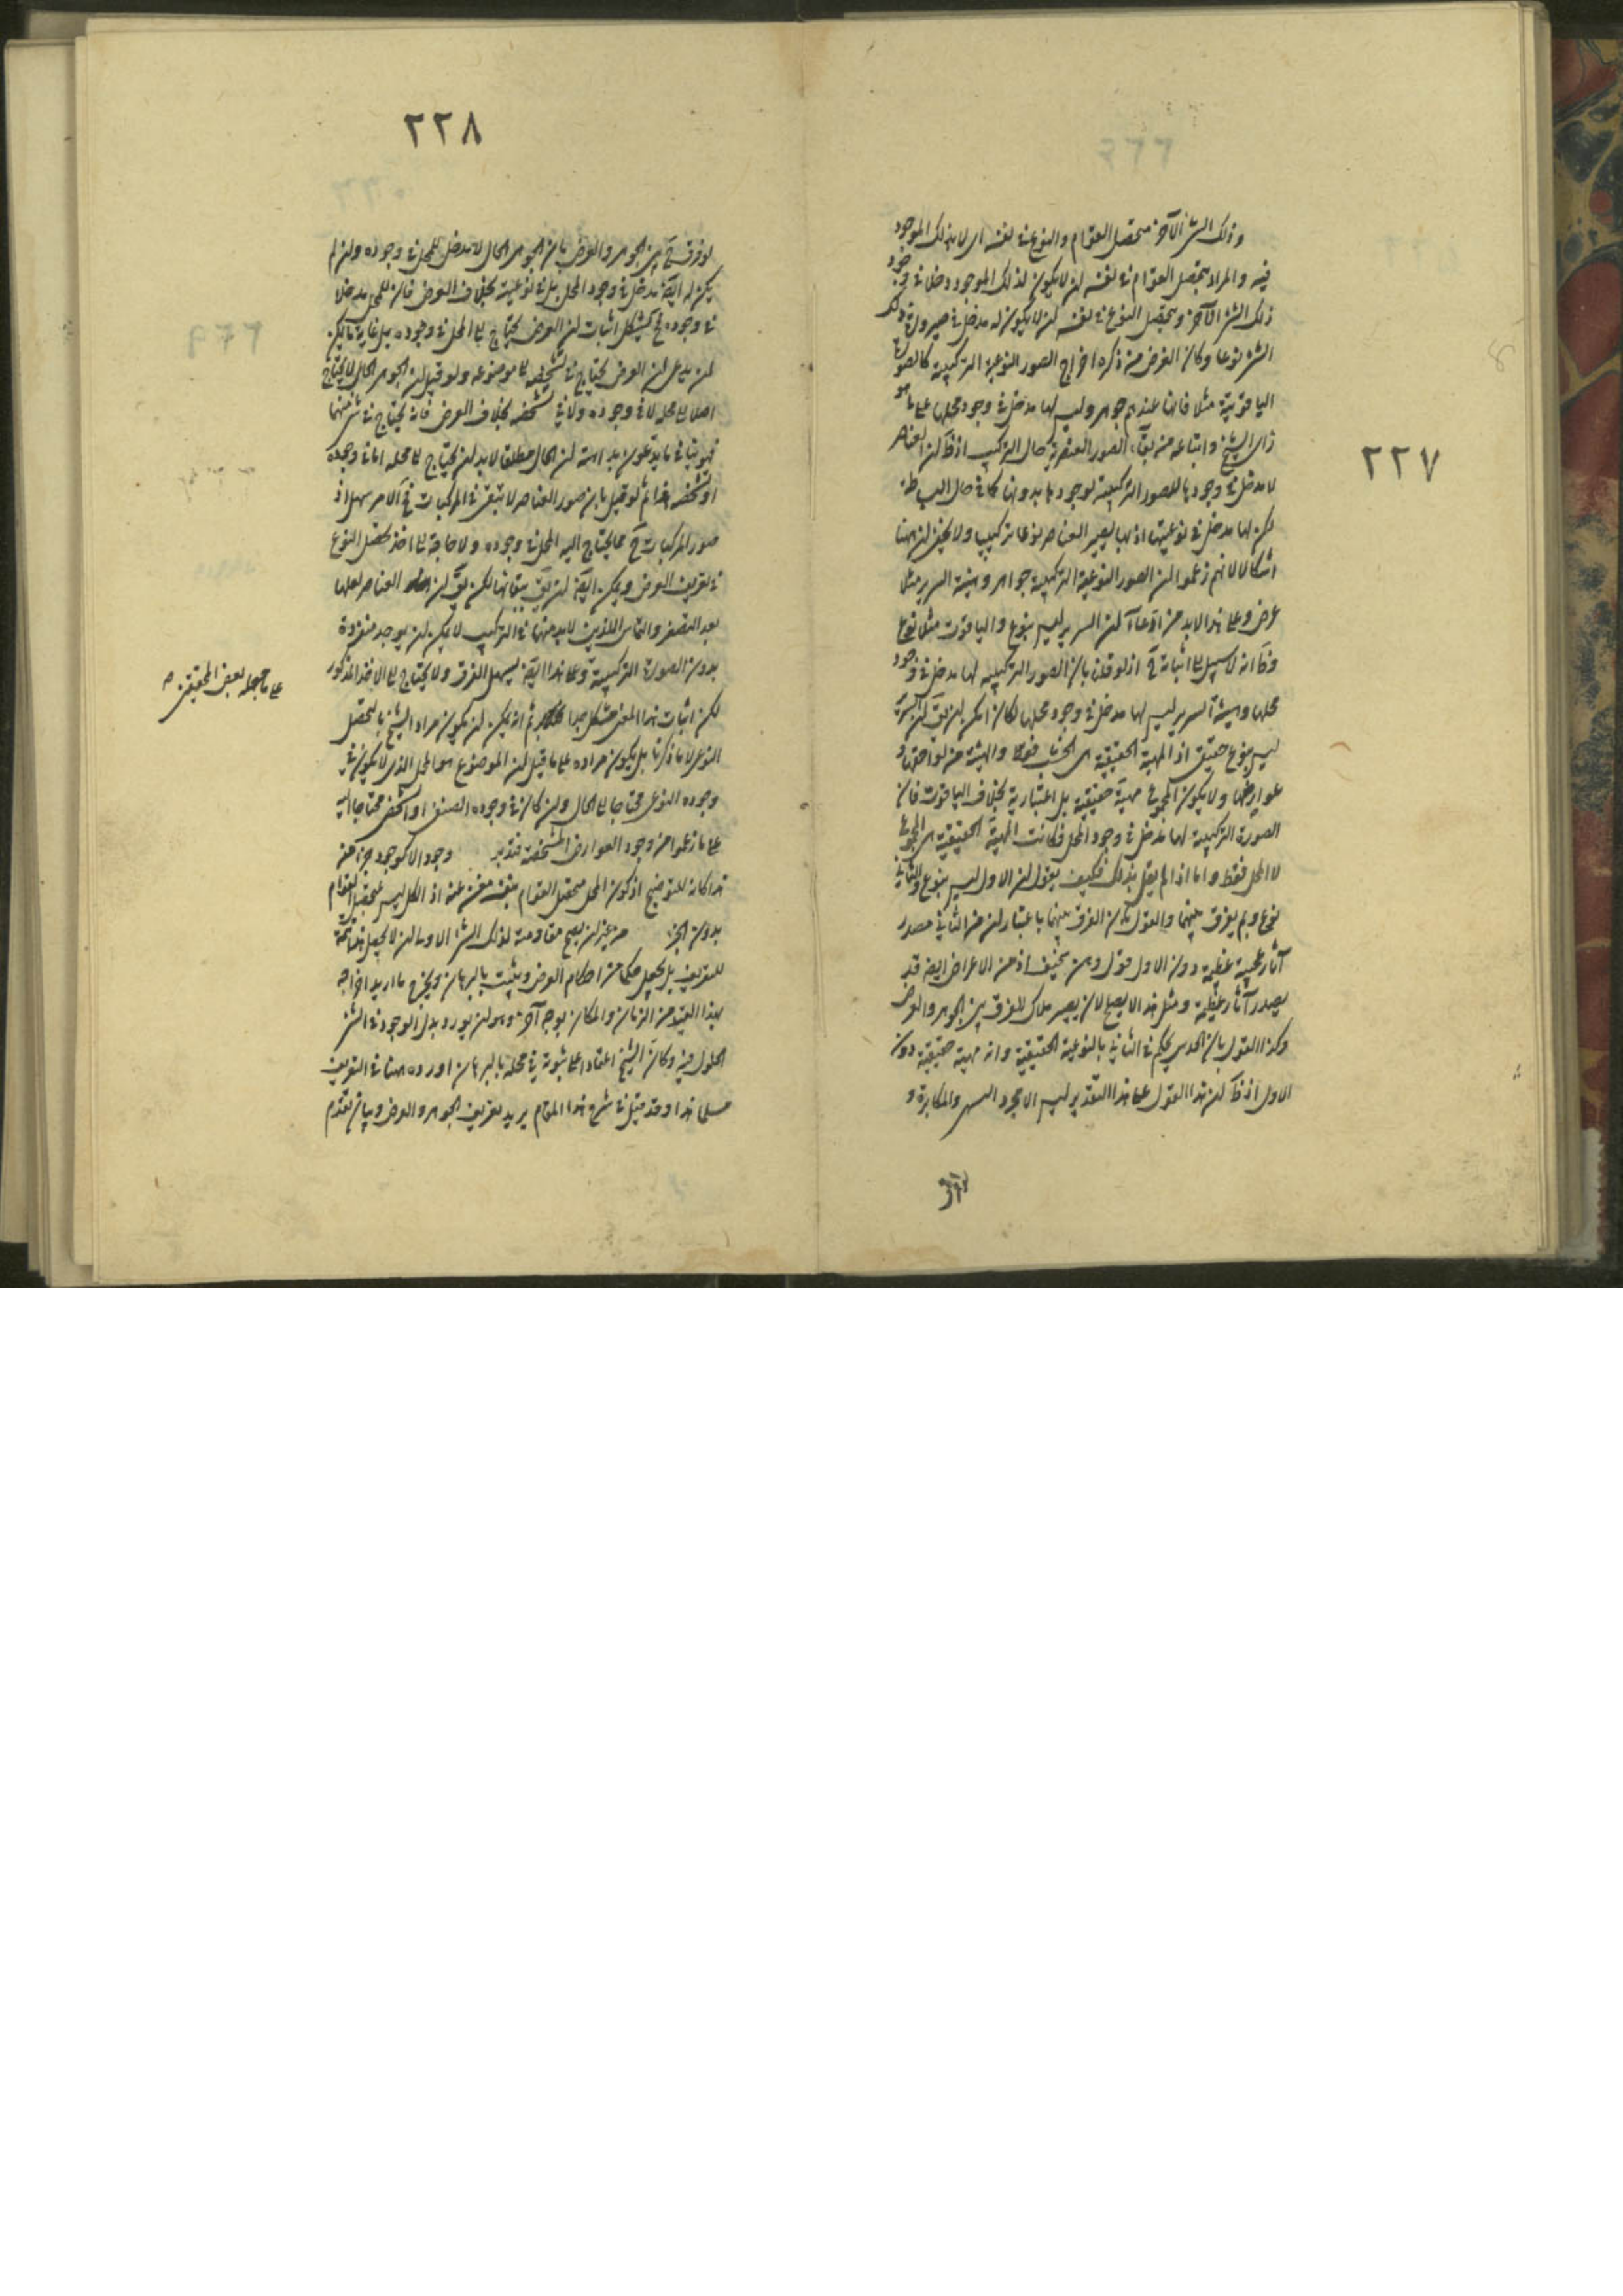 ٢٢٧
وذلك الشئ الآخر متحصل القوام والنوع في نفسه اى لا بذلك الموجود
فيه والمراد بتحصل القوام في نفسه ان لا يكون لذلك الموجود دخل في وجود
ذلك الشئ الآخر وبتحصل النوع في نفسه ان لا يكون له مدخل في صيرورة ذلك
الشئ نوعا وكان الغرض من ذكره اخراج الصور النوعية التركيبية كالصورة
الياقوتية مثلا فانها عندهم جوهر وليس لها مدخل في وجود محلها على ما هو
رأى الشيخ واتباعه من بقاء الصور العنصرية حال التركيب اذ ظ ان العناصر
لا مدخل في وجودها للصور التركيبية لوجودها بدونها كما في حال البساطة
لكن لها مدخل في نوعيتها اذ بها يصير العناصر نوعا تركيبيا ولا يخفى ان ههنا
اشكالا لانهم زعموا ان الصور النوعية التركيبية جواهر وهيئة السرير مثلا
عرض وعلى هذا لابد من ادعاء ان السرير ليس بنوع والياقوت مثلا نوع
وكأنه لا سبيل الى اثباته ح اذ لو قلنا بان الصور التركيبية لها مدخل في وجود
محلها وهيئة السرير ليس لها مدخل في وجود محلها لكان امكن ان يق ان السرير
ليس بنوع حقيقى اذ المهية الحقيقية هى الخشب فقط والهيئة من لواحقها و
عوارضها ولا يكون المجموع مهية حقيقية بل اعتبارية بخلاف الياقوت فان
الصورة التركيبية لها مدخل في وجود المحل فكانت المهية الحقيقية هى المجموع
لا المحل فقط واما اذا لم يقل بذلك فكيف يقول ان الاول ليس بنوع والثانى
نوع وبم يفرق بينهما والقول بان الفرق بينهما باعتبار ان من الثانى مصدر
آثار عجيبة عظيمة دون الاول قول وهن سخيف اذ من الاعراض ايضا قد
يصدر آثار عظيمة ومثل هذا لا يصلح لان يصير ملاك للفرق بين الجوهر والعرض
وكذا القول بان الحدس يحكم في الثانى بالنوعية الحقيقية وانه مهية حقيقية دون
الاول اذ ظ ان هذا القول على هذا التقدير ليس الا مجرد التسمية والمكابرة و
٢٢٨
لو فرق ح بين الجوهر والعرض بان الجوهر الحال لا مدخل للمحل في وجوده وان لم
يكن له ايضا مدخل في وجود المحل بل في نوعيته بخلاف العرض فان للمحل مدخلا
في وجوده فح يشكل اثبات ان العرض يحتاج الى المحل في وجوده بل غاية ما يمكن
ان يدعى ان العرض يحتاج في تشخصه الى موضوعه ولو قيل ان الجوهر الحال لا يحتاج
اصلا الى محله لا في وجوده ولا في تشخصه بخلاف العرض فانه يحتاج في شئ منهما
فهو ينافى ما يدعون بداهته ان الحال مطلقا لابد ان يحتاج الى محله اما في وجوده
او تشخصه هذا ثم لو قيل بان صور العناصر لا تبقى في المركبات فح الامر سهل اذ
صور المركبات ح مما يحتاج اليه المحل في وجوده ولا حاجة الى اخذ تحصل النوع
في تعريف العرض ويمكن ايضا ان يق ببقائها لكن يق ان العناصر لعلها
بعد التصغر والتماس اللذين لابد منهما في التركيب لا يمكن ان يوجد منفردة
بدون الصورة التركيبية وعلى هذا ايضا يسهل الفرق ولا يحتاج الى الاخذ المذكور
لكن اثبات هذا المعنى مشكل جدا ثم انه يمكن ان يكون مراد الشيخ بالتحصل
النوعى لا ما ذكرنا بل يكون مراده على ما قيل ان الموضوع هو المحل الذى لا يكون في
وجوده النوعى محتاجا الى الحال وان كان في وجوده الصنفى او الشخصى محتاجا اليه
على ما زعموا من وجود العوارض المشخصة فتدبر وجودا لا كوجود جزء منه
هذا كانه للتوضيح اذ كون المحل متحصل القوام بنفسه مغن عنه اذ الكل ليس بمتحصل القوام
بدون الجزء من غير ان يصح مفارقته لذلك الشئ الاولى ان لا يجعل هذا تتمة
للتعريف بل يجعل حكما من احكام العرض ويثبت بالبرهان ويخرج ما اريد اخراجه
بهذا القيد من الزمان والمكان بوجه آخر وهو ان يورد بدل الوجود في الشئ
الحلول فيه وكأن الشيخ اعتمادا على ثبوته في محله بالبرهان اورده ههنا في التعريف
مسلما هذا وقد قيل في شرح هذا المقام يريد تعريف الجوهر والعرض وبيان تقدم
على ما جعله بعض المحققين